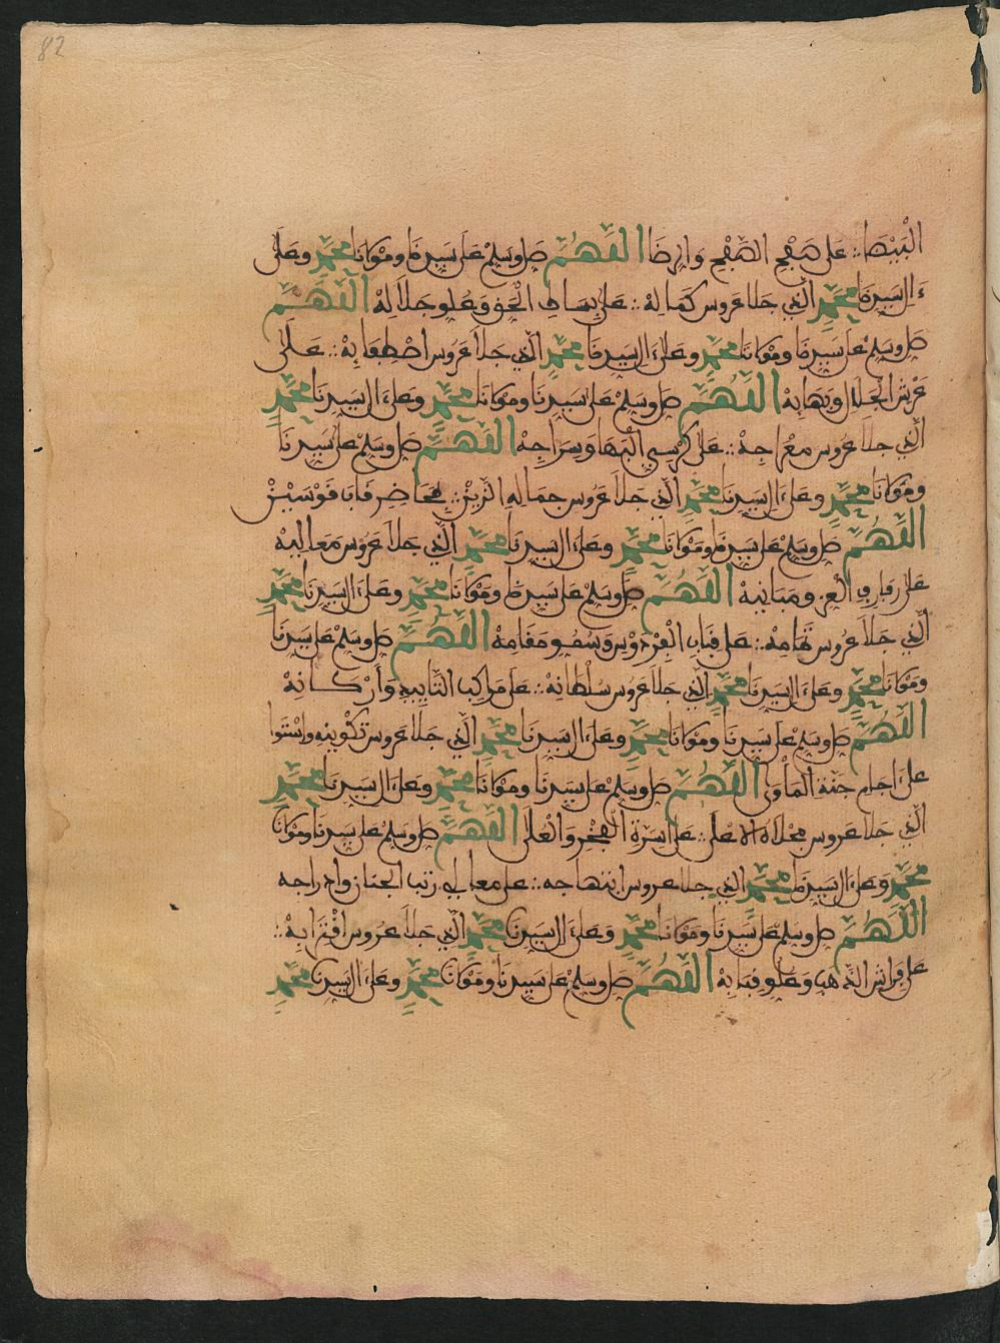 82
البيضا ∴ على صفح الصفح والرضا اللهم صل وسلم على سيدنا ومولانا محمد وعلى
ءال سيدنا محمد الذي جلا عروس كماله ∴ على بساط الحق وعلو جلاله اللهم
صل وسلم على سيدنا ومولانا محمد وعلى ءال سيدنا محمد الذي جلا عروس اصطفايه ∴ على
عرش الجلال وبهايه اللهم صل وسلم على سيدنا ومولانا محمد وعلى ءال سيدنا محمد
الذي جلا عروس معراجه ∴ على كرسي البها وسراجه اللهم صل وسلم على سيدنا
ومولانا محمد وعلى ءال سيدنا محمد الذي جلا عروس جماله العزيز ∴ بمحاضر قاب قوسين
اللهم صل وسلم على سيدنا ومولانا محمد وعلى ءال سيدنا محمد الذي جلا عروس معاليه
على رفارف العز ومبانيه اللهم صل وسلم على سيدنا ومولانا محمد وعلى ءال سيدنا محمد
الذي جلا عروس تمامه ∴ على قباب الفردوس وسمو مقامه اللهم صل وسلم على سيدنا
ومولانا محمد وعلى ءال سيدنا محمد الذي جلا عروس سلطانه ∴ على مراكب التاييد وأركانه
اللهم صل وسلم على سيدنا ومولانا محمد وعلى ءال سيدنا محمد الذي جلا عروس تكوينه واستوا
على جنة المأوى اللهم صل وسلم على سيدنا ومولانا محمد وعلى ءال سيدنا محمد
الذي جلا عروس الاعلى ∴ على أسرة الفخر والعلى اللهم صل وسلم على سيدنا ومولانا
محمد وعلى ءال سيدنا محمد الذي جلا عروس ابتهاجه ∴ على معالي رتب الجنان وادراجه
اللهم صل وسلم على سيدنا ومولانا محمد وعلى ءال سيدنا محمد الذي جلا عروس اقترابه ∴
على فراش الذهب وعلو قبابه اللهم صل وسلم على سيدنا ومولانا محمد وعلى ءال سيدنا محمد